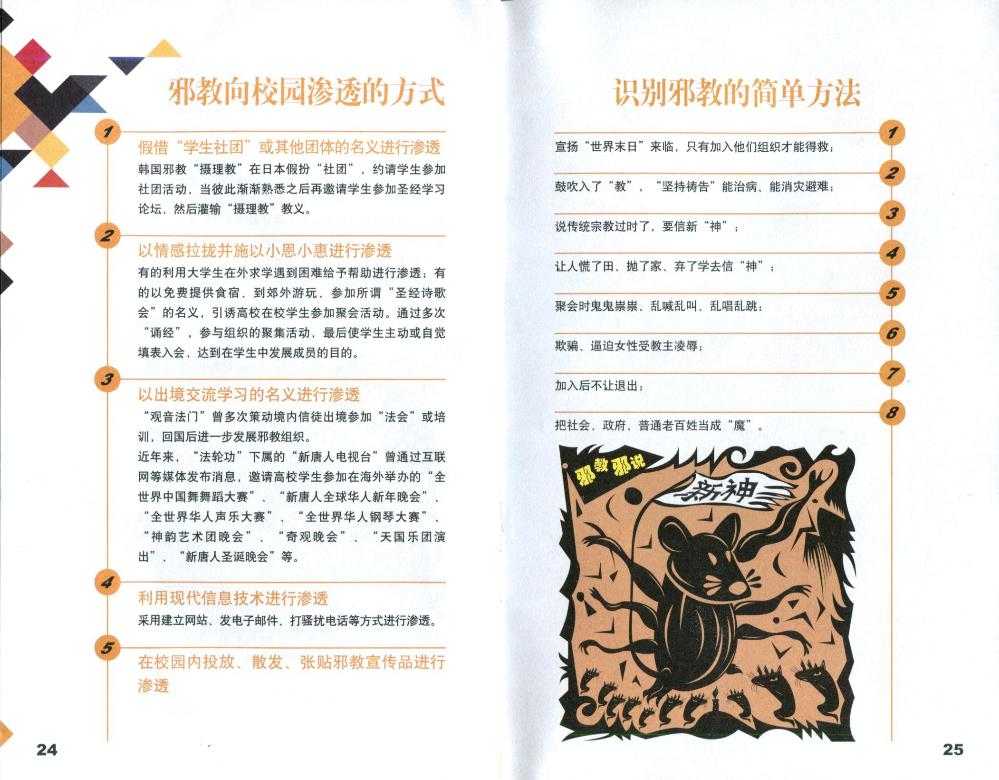 邪教向校园渗透的方式
1
假借“学生社团”或其他团体的名义进行渗透
韩国邪教“摄理教”在日本假扮“社团”，约请学生参加
社团活动，当彼此渐渐熟悉之后再邀请学生参加圣经学习
论坛，然后灌输“摄理教”教义。
2
以情感拉拢并施以小恩小惠进行渗透
有的利用大学生在外求学遇到困难给予帮助进行渗透；有
的以免费提供食宿、到郊外游玩、参加所谓“圣经诗歌
会”的名义，引诱高校在校学生参加聚会活动。通过多次
“诵经”，参与组织的聚集活动，最后使学生主动或自觉
填表入会，达到在学生中发展成员的目的。
3
以出境交流学习的名义进行渗透
“观音法门”曾多次策动境内信徒出境参加“法会”或培
训，回国后进一步发展邪教组织。
近年来，“法轮功”下属的“新唐人电视台”曾通过互联
网等媒体发布消息，邀请高校学生参加在海外举办的“全
世界中国舞舞蹈大赛”、“新唐人全球华人新年晚会”、
“全世界华人声乐大赛”、“全世界华人钢琴大赛”、
“神韵艺术团晚会”、“奇观晚会”、“天国乐团演
出”、“新唐人圣诞晚会”等。
4
利用现代信息技术进行渗透
采用建立网站、发电子邮件、打骚扰电话等方式进行渗透。
5
在校园内投放、散发、张贴邪教宣传品进行
渗透
24
识别邪教的简单方法
1
宣扬“世界末日”来临，只有加入他们组织才能得救；
2
鼓吹入了“教”，“坚持祷告”能治病、能消灾避难；
3
说传统宗教过时了，要信新“神”；
4
让人慌了田、抛了家、弃了学去信“神”；
5
聚会时鬼鬼祟祟、乱喊乱叫、乱唱乱跳；
6
欺骗、逼迫女性受教主凌辱；
7
加入后不让退出；
8
把社会、政府、普通老百姓当成“魔”。
邪教邪说
新神
25